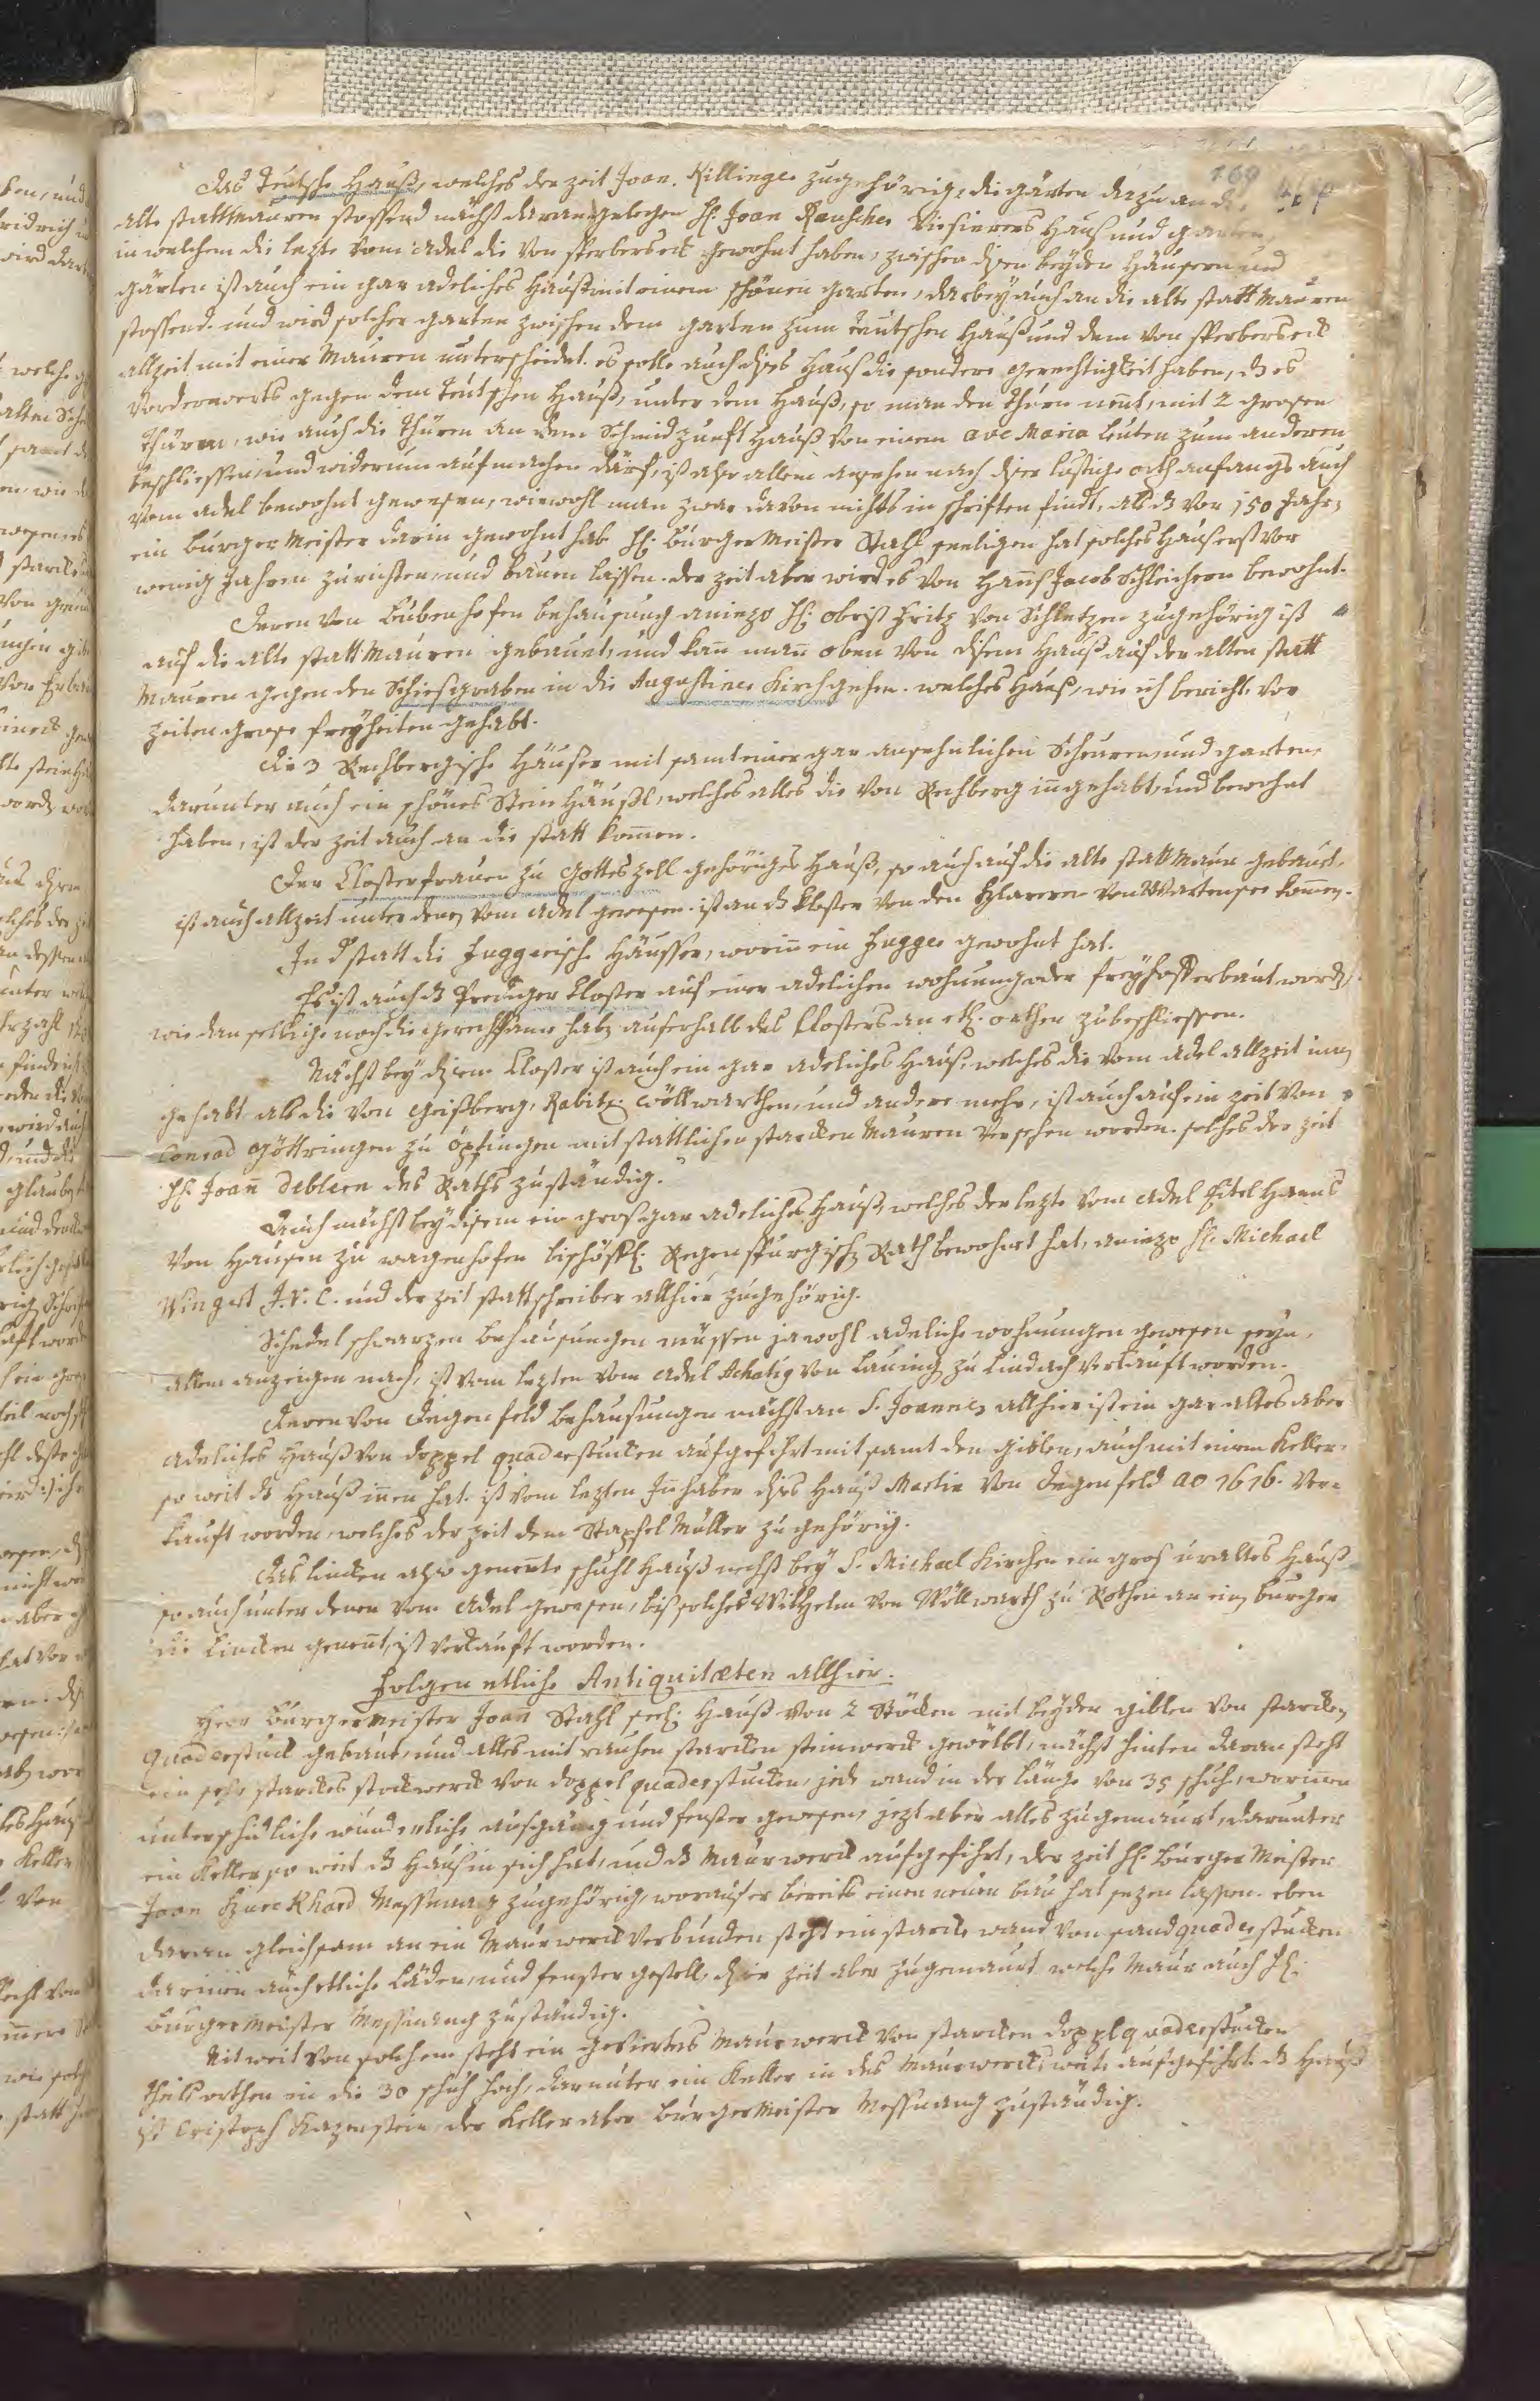 169
Das Teutsche Hauß, welches der zeit Joan. Killinger zugehörig, die gärten darzu an die
alte stattMauren stossend nächst daran gelegen H: Joan Rauscher Visierers Hauß und garten,
in welchem die lezte vom Adel die von Sperberseck gewohnt haben, zwischen disen beyden Häusern und
gärten ist auch ein gar adeliches Hauß mit einem schönen garten, darbey auch an die alte stattMauren
stossend. und wird solcher garten zwischen dem garten zum Teutschen Hauß und dem von Sperberseck
allzeit mit einer Mauren unterscheidet. es solle auch dises Hauß die sondere gerechtigkeit haben, ds es
vorderwerts gegen dem Teutschen Hauß, unter dem Hauß, so man den Thurn nent, mit 2 grosen
Thüren, wie auch die Thüren an dem Schmidzunft Hauß von einem ave Maria leuten zum anderen
beschliessen, und widerum aufmachen därf, ist also allem ansehen nach diser lustige orth anfangs auch
vom adel bewohnt gewesen, wiewohl man zwar davon nichts in schriften findt, als ds vor 150 Jahr,
ein burgerMeister darin gewohnt hab. H: burgerMeister Stahl seeligen hat solches Hauß erst vor
wenig Jahren zurichten, und bauen lassen. der zeit aber wird es von Hanß Jacob Schleichern bewohnt.
Deren von Bubenhofen behausung aniezo H: obrist Fritz von Schletzen zugehörig ist
auf die alte stattMauren gebauet, und kan man oben von disem Hauß auf der alten statt
Mauren gegen den Schiesgraben in die Augustiner Kirch gehen. welches Hauß, wie ich bericht, vor
zeiten grose freyheiten gehabt.
Die 3 Rechbergische Häuser mit samt einer gar ansehnlichen Scheuren, und garten,
darunter auch ein schönes Stein Häußl, welches alles die von Rechberg ingehabt, und bewohnt
haben, ist der zeit auch an die statt komen.
Der Closterfrauen zu Gotteszell gehöriges Hauß, so auch auf die alte stattMaur gebaut,
ist auch allzeit unter denen vom Adel gewesen. ist an ds Kloster von den Blarern von Wartensee komen.
In d statt die Fuggerische Häusser, worin ein Fugger gewohnt hat.
Es ist auch ds Prediger Closter auf einer adelichen wohnung oder freyhoff erbaut worden,
wie dan selbige noch die gerechtsame habn auserhalb des Closters an etl: orthen zubeschliessen.
Nächst bey disem Closter ist auch ein gar adeliches Hauß, welches die vom Adel allzeit inn
gehabt als die von Geißberg, Rabitz: Wöllwarthen, und andere mehr, ist auch auf ein zeit von
Conrad Göttringen zu Öpfingen mit stattlichen starcken Mauren versehen worden. solches der zeit
H: Joan Deblern des Raths zuständig.
Auch nächst bey disem ein groß gar adeliches Hauß, welches der lezte vom Adel Eitel Hanns
von Hausen zu wagenhofen bischöffl: Regenspurgisch Rath bewohnt hat, aniezo H: Michael
Wingert J.V.C. und der zeit stattschreiber allhier zugehörig.
Schedel schwarzen behausungen müssen ja wohl adeliche wohnungen gewesen seyn,
allem anzeigen nach, ist vom lezten vom Adel Achatig von Lauing zu Lindach verkauft worden.
Deren von Degenfeld behausungen nächst an S. Joannes allhier ist ein gar altes aber
adeliches Hauß von doppel quaderstucken aufgeführt mit samt den giblen, auch mit einem Keller,
so weit ds Hauß innen hat. ist vom lezten Inhaber dises Hauß Martin von Degenfeld ao 1616. ver-
kauft worden, welches der zeit dem Stapfel Müller zugehörig.
Das lincken also genente schuhl Hauß nechst bey S. Michael Kirchen ein groß uraltes Hauß
so auch unter denen vom Adel gewesen, biß solches Wilhelm von Wöllwarth zu Rothen an ein burger
die Lincken genent, ist verkauft worden.
Folgen etliche Antiquitæten allhier.
Herr burgermeister Joan Stahl seel: Hauß von 2 Stöcken mit beyden giblen von starcken
quaderstuck gebaut, und alles mit rauhen starcken steinwerck gewölbt, nächst hinten daran steht
ein sehr starckes stockwerck von doppel quaderstucken, jede wand in der länge von 35 schuh, worinnen
unterschidliche wunderliche ausgäng und fenster gewesen, jezt aber alles zugemaurt, darunter
ein Keller so weit ds Hauß in sich hat, und ds Maurwerck aufgeführt, der zeit H: burgerMeister
Joan Burckhard Messnang zugehörig, worauf er bereits einen neuen bau hat sezen lassen. eben
daran gleichsam an ein Maurwerck verbunden steht ein starcke wand von sandquaderstucken
darinen auch etliche Läden, und fenster gestell, diser zeit aber zugemaurt welche Maur auch H:
burgermeister Messnang zuständig.
Nit weit von solchem steht ein geviertes Maurwerck von starcken dopplquaderstucken
theils orthen in die 30 schuh hoch, darunter ein Keller in des Maurwercks weite aufgeführt. ds Hauß
ist Cristoph Kazenstein, der Keller aber burgerMeister Messnang zuständig.